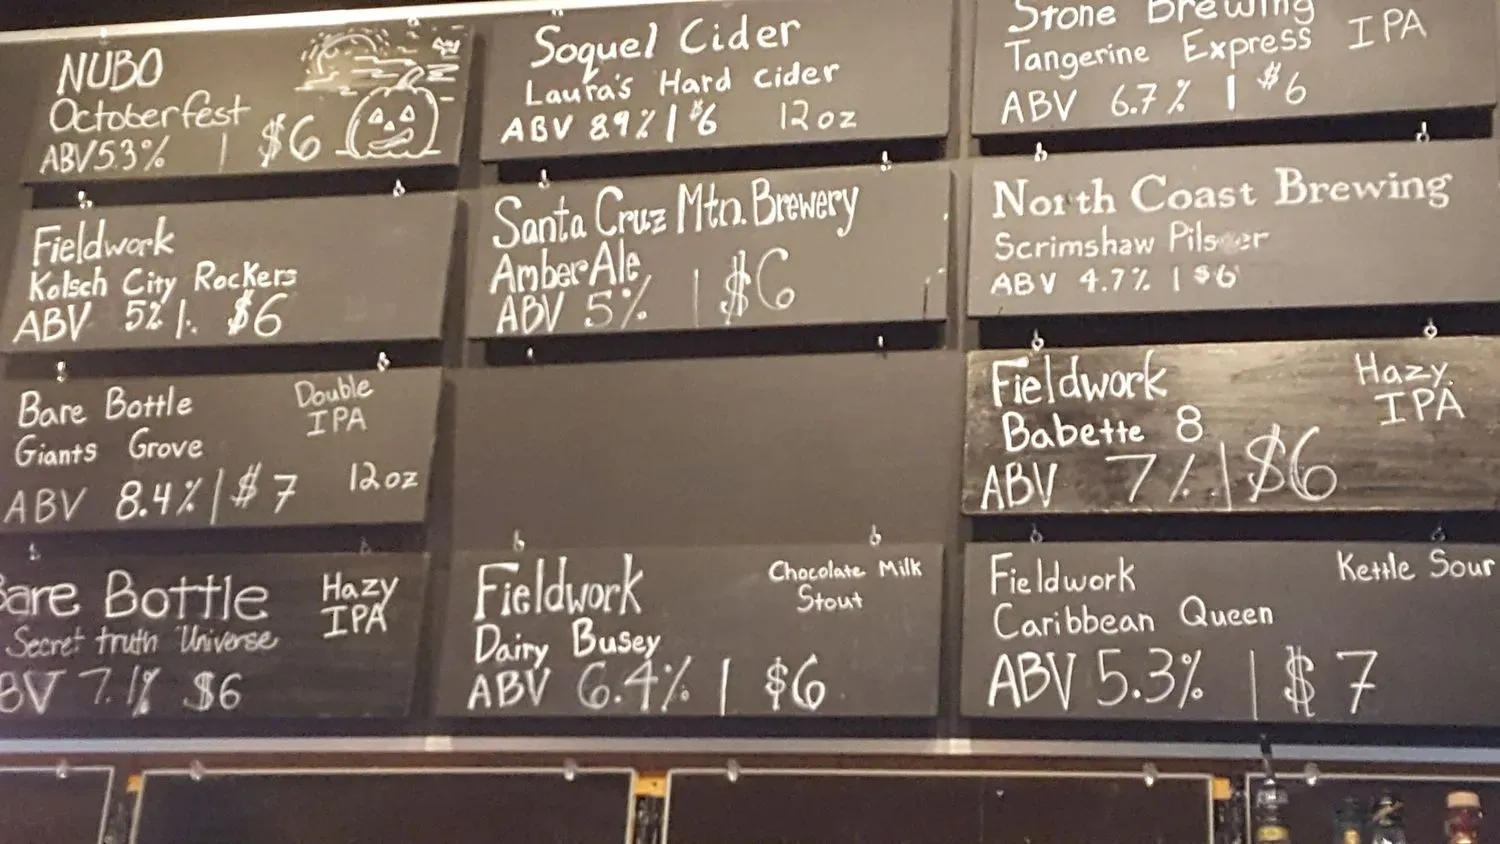 NUBO
Octoberfest
ABV 5.3% | $6
Fieldwork
Kolsch City Rockers
ABV 5% | $6
Bare Bottle Double
Giants Grove IPA
ABV 8.4% | $7 12oz
Bare Bottle Hazy
Secret truth Universe IPA
BV 7.1% $6
Soquel Cider
Laura's Hard cider
ABV 8.9% | $6 12oz
Santa Cruz Mtn. Brewery
Amber Ale
ABV 5% | $6
Fieldwork Chocolate Milk
Stout
Dairy Busey
ABV 6.4% | $6
Stone Brewing IPA
Tangerine Express
ABV 6.7% | $6
North Coast Brewing
Scrimshaw Pilsner
ABV 4.7% | $6
Fieldwork Hazy
Babette 8 IPA
ABV 7% | $6
Fieldwork Kettle Sour
Caribbean Queen
ABV 5.3% | $7